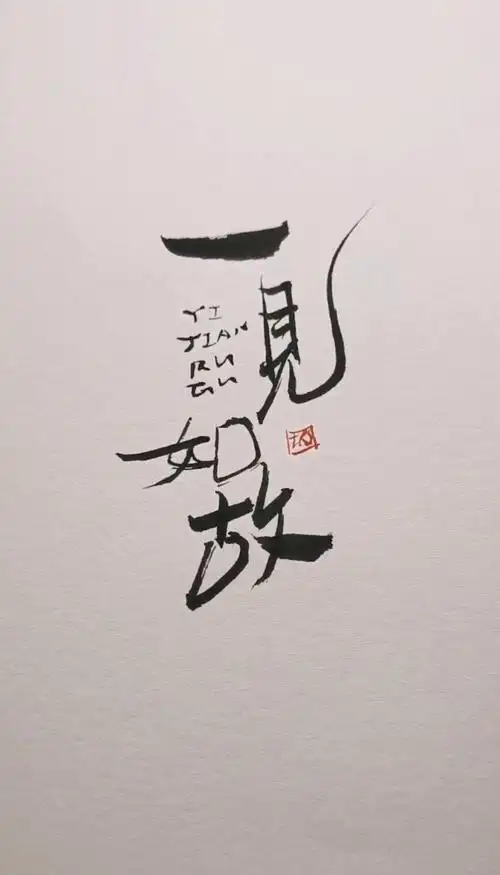 一見
YI
JIAN
RU
GU
如故